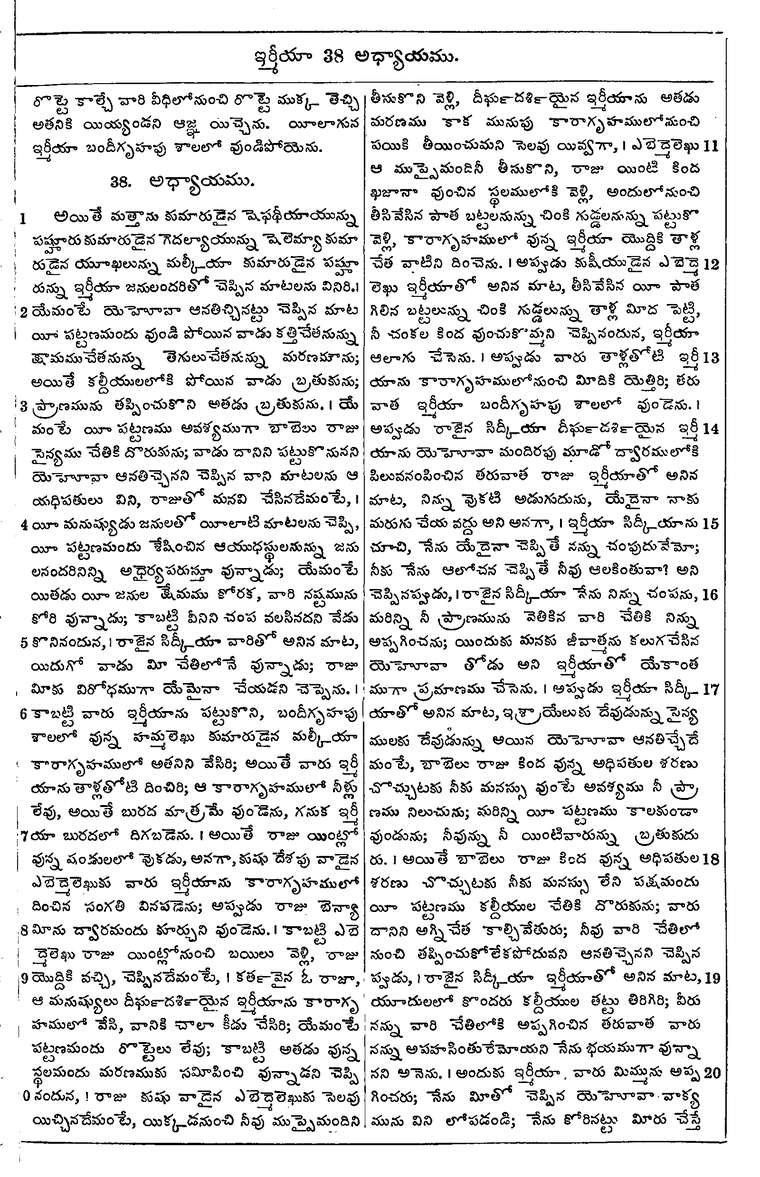 ఇర్మీయా 38 అధ్యాయము.
రొట్టె కాల్చే వారి వీధిలోనుంచి రొట్టె ముక్క తెచ్చి
అతనికి యియ్యండని ఆజ్ఞ యిచ్చెను. యీలాగున
ఇర్మీయా బందీగృహపు శాలలో వుండిపోయెను.
38. అధ్యాయము.
1 అయితే మత్తాను కుమారుడైన షెఫథీయాయున్ను
పష్హూరు కుమారుడైన గెదల్యాయున్ను షెలెమ్యా కుమా
రుడైన యూఖలున్ను మల్కీయా కుమారుడైన పష్హూ
రున్ను ఇర్మీయా జనులందరితో చెప్పిన మాటలను వినిరి.।
2 యేమంటే యెహోవా ఆనతిచ్చినట్టు చెప్పిన మాట
యీ పట్టణమందు వుండి పోయిన వాడు కత్తిచేతనున్ను
క్షామముచేతనున్ను తెగులుచేతనున్ను మరణమౌను;
అయితే కల్దీయులలోకి పోయిన వాడు బ్రతుకును;
3 ప్రాణమును తప్పించుకొని అతడు బ్రతుకును.। యే
మంటే యీ పట్టణము అవశ్యముగా బాబెలు రాజు
సైన్యము చేతికి దొరుకును; వాడు దానిని పట్టుకొనునని
యెహోవా ఆనతిచ్చెనని చెప్పిన వాని మాటలను ఆ
యధిపతులు విని, రాజుతో మనవి చేసినదేమంటే,।
4 యీ మనుష్యుడు జనులతో యీలాటి మాటలను చెప్పి,
యీ పట్టణమందు శేషించిన ఆయుధస్థులనున్ను జను
లనందరినిన్ని అధైర్యపరుస్తూ వున్నాడు; యేమంటే
యితడు యీ జనుల క్షేమము కోరక, వారి నష్టమును
కోరి వున్నాడు; కాబట్టి వీనిని చంప వలసినదని వేడు
5 కొనినందున,। రాజైన సిద్కీయా వారితో అనిన మాట,
యిదుగో వాడు మీ చేతిలోనే వున్నాడు; రాజు
మీకు విరోధముగా యేమైనా చేయడని చెప్పెను.।
6 కాబట్టి వారు ఇర్మీయాను పట్టుకొని, బందీగృహపు
శాలలో వున్న హమ్మలెఖు కుమారుడైన మల్కీయా
కారాగృహములో అతనిని వేసిరి; అయితే వారు ఇర్మీ
యాను తాళ్లతోటి దించిరి; ఆ కారాగృహములో నీళ్లు
లేవు, అయితే బురద మాత్రమే వుండెను, గనుక ఇర్మీ
7 యా బురదలో దిగబడెను.। అయితే రాజు యింట్లో
వున్న షండులలో వొకడు, అనగా, కుషు దేశపు వాడైన
ఎబెద్మెలెఖుకు వారు ఇర్మీయాను కారాగృహములో
దించిన సంగతి వినపడెను; అప్పుడు రాజు బెన్యా
8 మీను ద్వారమందు కూర్చుని వుండెను.। కాబట్టి ఎబె
ద్మెలెఖు రాజు యింట్లోనుంచి బయిలు వెళ్లి, రాజు
9 యొద్దికి వచ్చి, చెప్పినదేమంటే,। కర్తవైన ఓ రాజా,
ఆ మనుష్యులు దీర్ఘదర్శియైన ఇర్మీయాను కారాగృ
హములో వేసి, వానికి చాలా కీడు చేసిరి; యేమంటే
పట్టణమందు రొట్టెలు లేవు; కాబట్టి అతడు వున్న
స్థలమందు మరణముకు సమీపించి వున్నాడని చెప్పి
0 నందున,। రాజు కుషు వాడైన ఎబెద్మెలెఖుకు సెలవు
యిచ్చినదేమంటే, యిక్కడనుంచి నీవు ముప్పైమందిని
తీసుకొని వెళ్లి, దీర్ఘదర్శియైన ఇర్మీయాను అతడు
మరణము కాక మునుపు కారాగృహములోనుంచి
పయికి తీయించుమని సెలవు యివ్వగా,। ఎబెద్మెలెఖు 11
ఆ ముప్పైమందినీ తీసుకొని, రాజు యింటి కింద
ఖజానా వుంచిన స్థలములోకి వెళ్లి, అందులోనుంచి
తీసివేసిన పాత బట్టలనున్ను చింకి గుడ్డలనున్ను పట్టుకొ
వెళ్లి, కారాగృహములో వున్న ఇర్మీయా యొద్దికి తాళ్ల
చేత వాటిని దించెను.। అప్పుడు కుషీయుడైన ఎబెద్మె 12
లెఖు ఇర్మీయాతో అనిన మాట, తీసివేసిన యీ పాత
గిలిన బట్టలున్ను చింకి గుడ్డలున్ను తాళ్ల మీద పెట్టి,
నీ చంకల కింద వుంచుకొమ్మని చెప్పినందున, ఇర్మీయా
ఆలాగు చేసెను.। అప్పుడు వారు తాళ్లతోటి ఇర్మీ 13
యాను కారాగృహములోనుంచి మీదికి యెత్తిరి; తరు
వాత ఇర్మీయా బందీగృహపు శాలలో వుండెను.।
అప్పుడు రాజైన సిద్కీయా దీర్ఘదర్శియైన ఇర్మీ 14
యాను యెహోవా మందిరపు మూడో ద్వారములోకి
పిలువనంపించిన తరువాత రాజు ఇర్మీయాతో అనిన
మాట, నిన్ను వొకటి అడుగుదును, యేదైనా నాకు
మరుగు చేయ వద్దు అని అనగా,। ఇర్మీయా సిద్కీయాను 15
చూచి, నేను యేదైనా చెప్పితే నన్ను చంపుదువేమో;
నీకు నేను ఆలోచన చెప్పితే నీవు ఆలకింతువా? అని
చెప్పినప్పుడు,। రాజైన సిద్కీయా నేను నిన్ను చంపను, 16
మరిన్ని నీ ప్రాణమును వెతికిన వారి చేతికి నిన్ను
అప్పగించను; యిందుకు మనకు జీవాత్మను కలుగచేసిన
యెహోవా తోడు అని ఇర్మీయాతో యేకాంత
ముగా ప్రమాణము చేసెను.। అప్పుడు ఇర్మీయా సిద్కీ 17
యాతో అనిన మాట, ఇశ్రాయేలుకు దేవుడున్ను సైన్య
ములకు దేవుడున్ను అయిన యెహోవా ఆనతిచ్చేదే
మంటే, బాబెలు రాజు కింద వున్న అధిపతుల శరణు
చొచ్చుటకు నీకు మనస్సు వుంటే అవశ్యము నీ ప్రా
ణము నిలుచును; మరిన్ని యీ పట్టణము కాలకుండా
వుండును; నీవున్ను నీ యింటివారున్ను బ్రతుకుదు
రు.। అయితే బాబెలు రాజు కింద వున్న అధిపతుల 18
శరణు చొచ్చుటకు నీకు మనస్సు లేని పక్షమందు
యీ పట్టణము కల్దీయుల చేతికి దొరుకును; వారు
దానిని అగ్నిచేత కాల్చివేతురు; నీవు వారి చేతిలో
నుంచి తప్పించుకోలేకపోదువని ఆనతిచ్చెనని చెప్పిన
ప్పుడు,। రాజైన సిద్కీయా ఇర్మీయాతో అనిన మాట, 19
యూదులలో కొందరు కల్దీయుల తట్టు తిరిగిరి; వీరు
నన్ను వారి చేతిలోకి అప్పగించిన తరువాత వారు
నన్ను అపహసింతురేమోయని నేను భయముగా వున్నా
నని అనెను.। అందుకు ఇర్మీయా, వారు మిమ్మును అప్ప 20
గించరు; నేను మీతో చెప్పిన యెహోవా వాక్య
మును విని లోపడండి; నేను కోరినట్టు మీరు చేస్తే